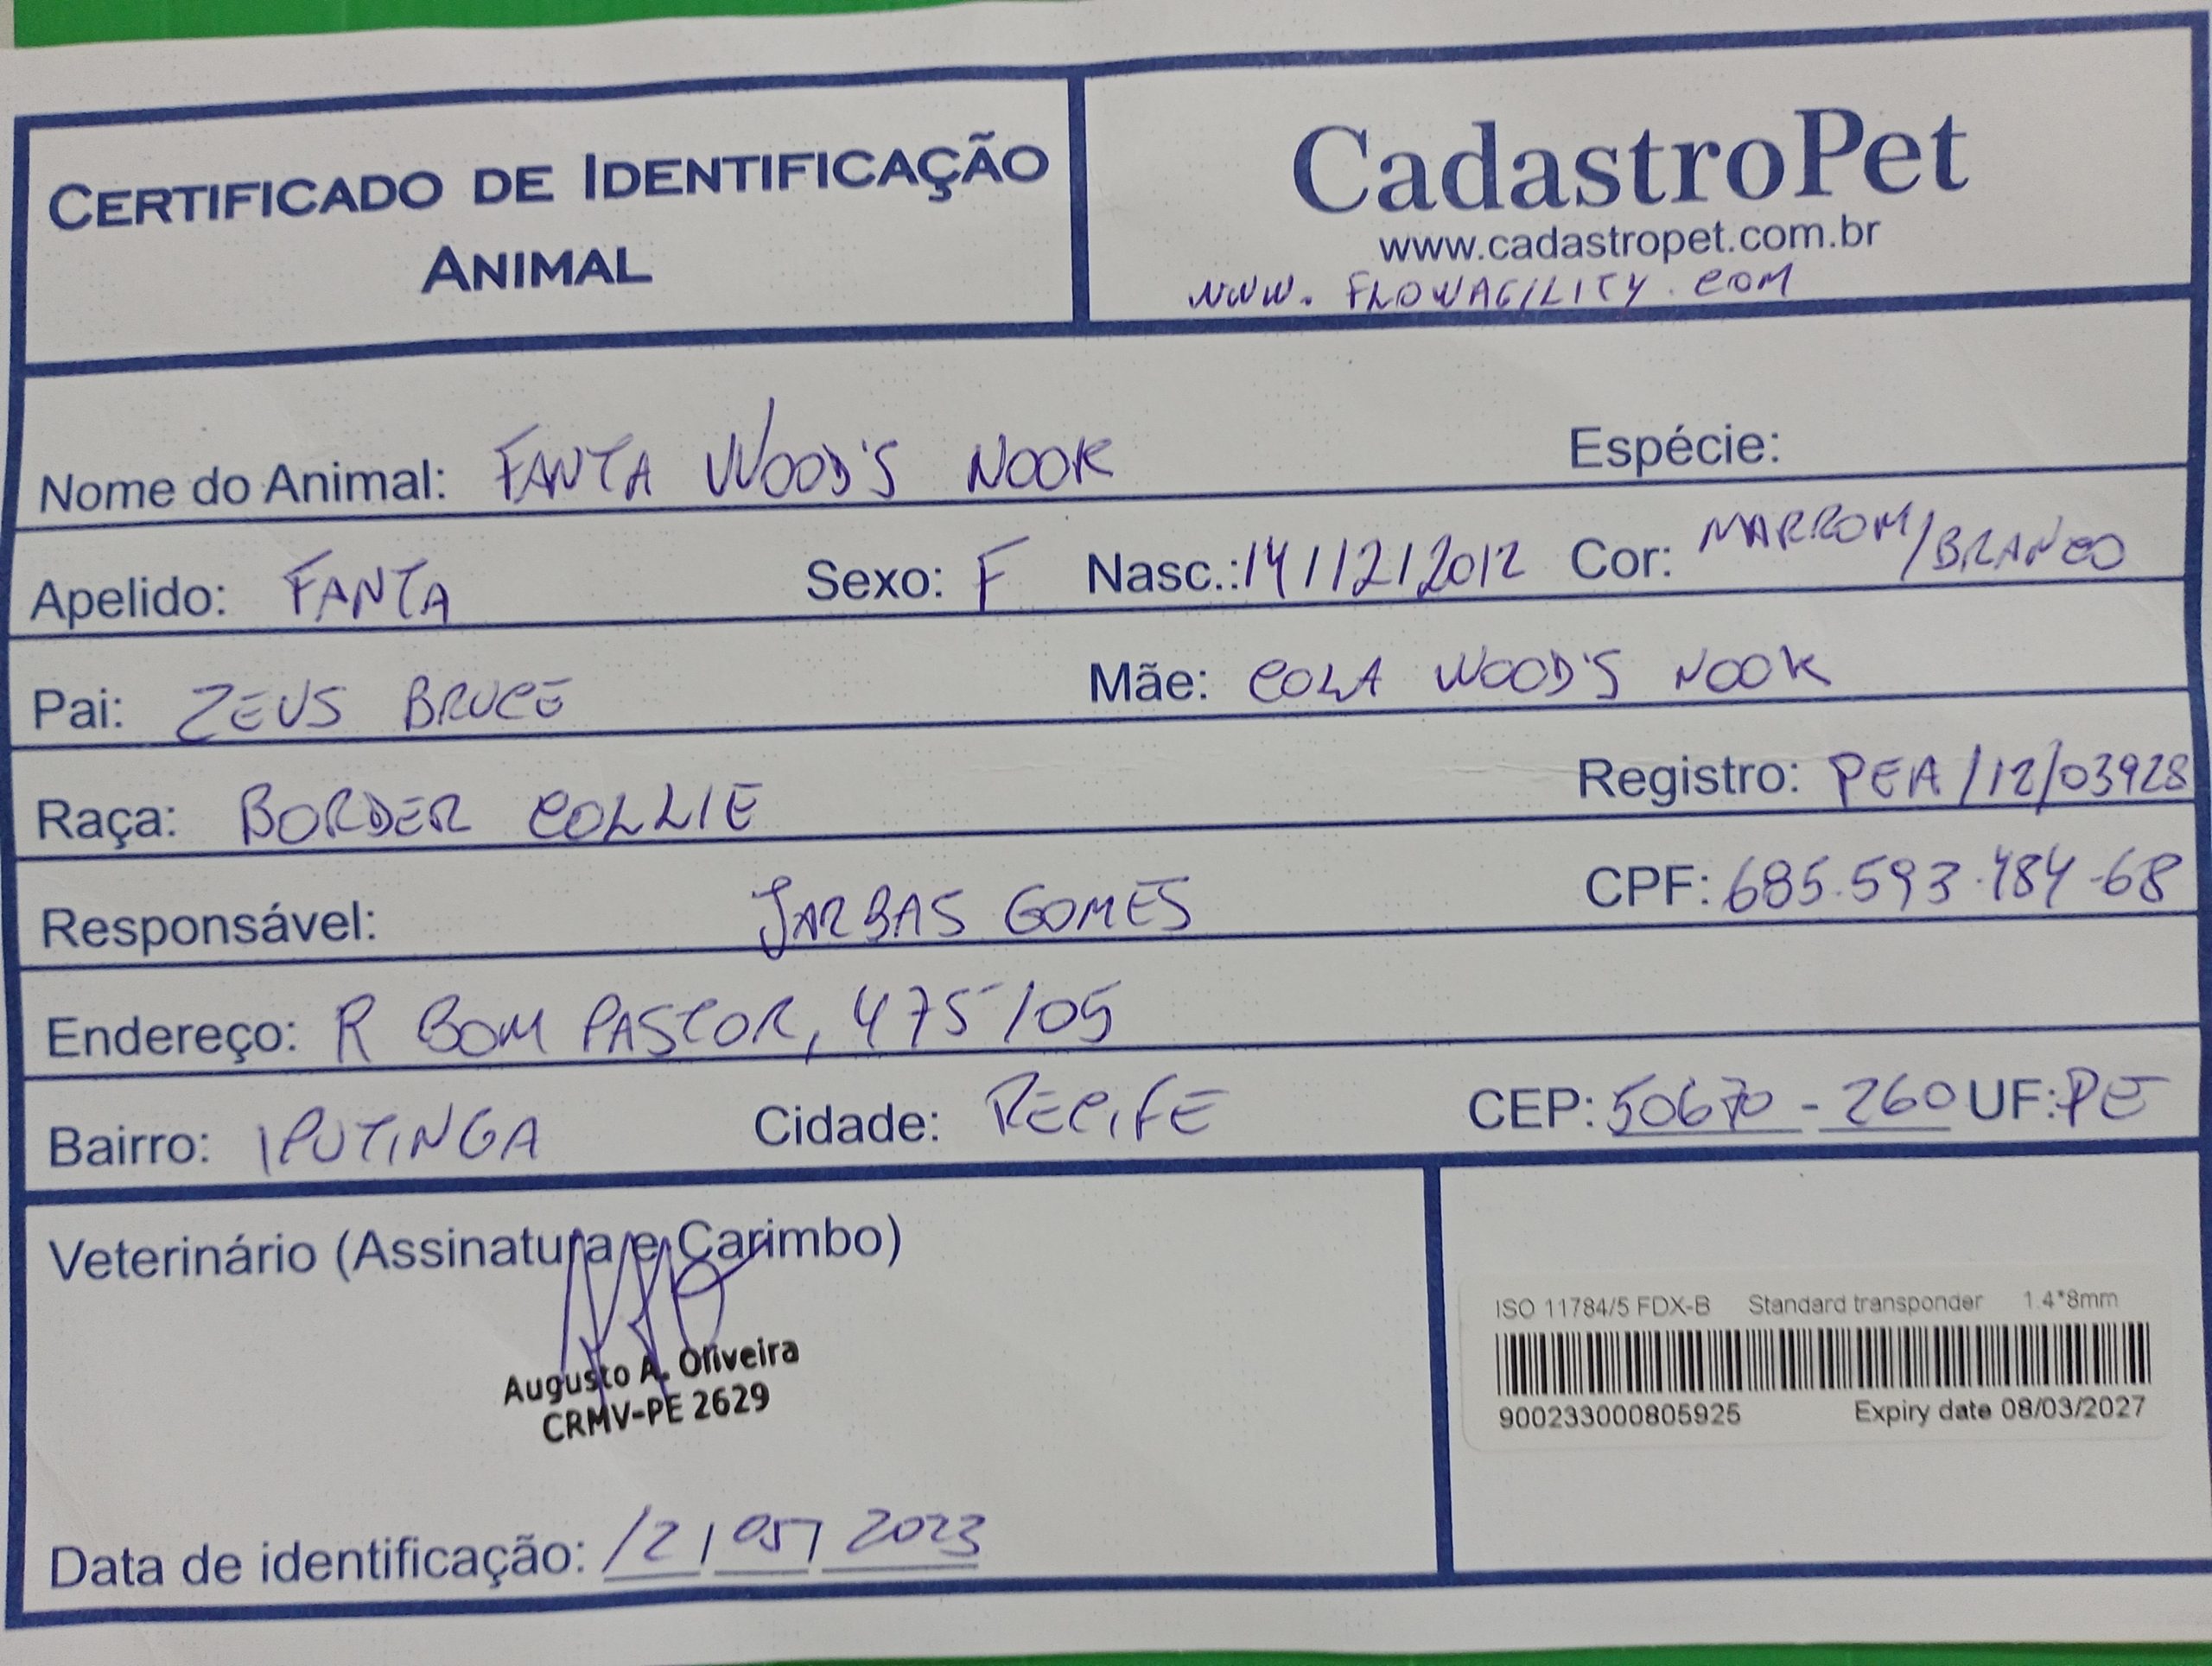 CERTIFICADO DE IDENTIFICAÇÃO
ANIMAL
CadastroPet
www.cadastropet.com.br
WWW. FLOWAGILITY.COM
Nome do Animal: FANTA WOOD'S NOOK Espécie:
Apelido: FANTA Sexo: F Nasc.: 14/12/2012 Cor: MARROM/BRANCO
Pai: ZEUS BRUCE Mãe: COLA WOOD'S NOOK
Raça: BORDER COLLIE Registro: PEA/12/03928
Responsável: JARBAS GOMES CPF: 685.593.484-68
Endereço: R BOM PASTOR, 475/05
Bairro: IPUTINGA Cidade: RECIFE CEP: 50670-260 UF: PE
Veterinário (Assinatura e Carimbo)
Augusto A. Oliveira
CRMV-PE 2629
Data de identificação: 12/05/2023
ISO 11784/5 FDX-B Standard transponder 1.4*8mm
900233000805925 Expiry date 08/03/2027